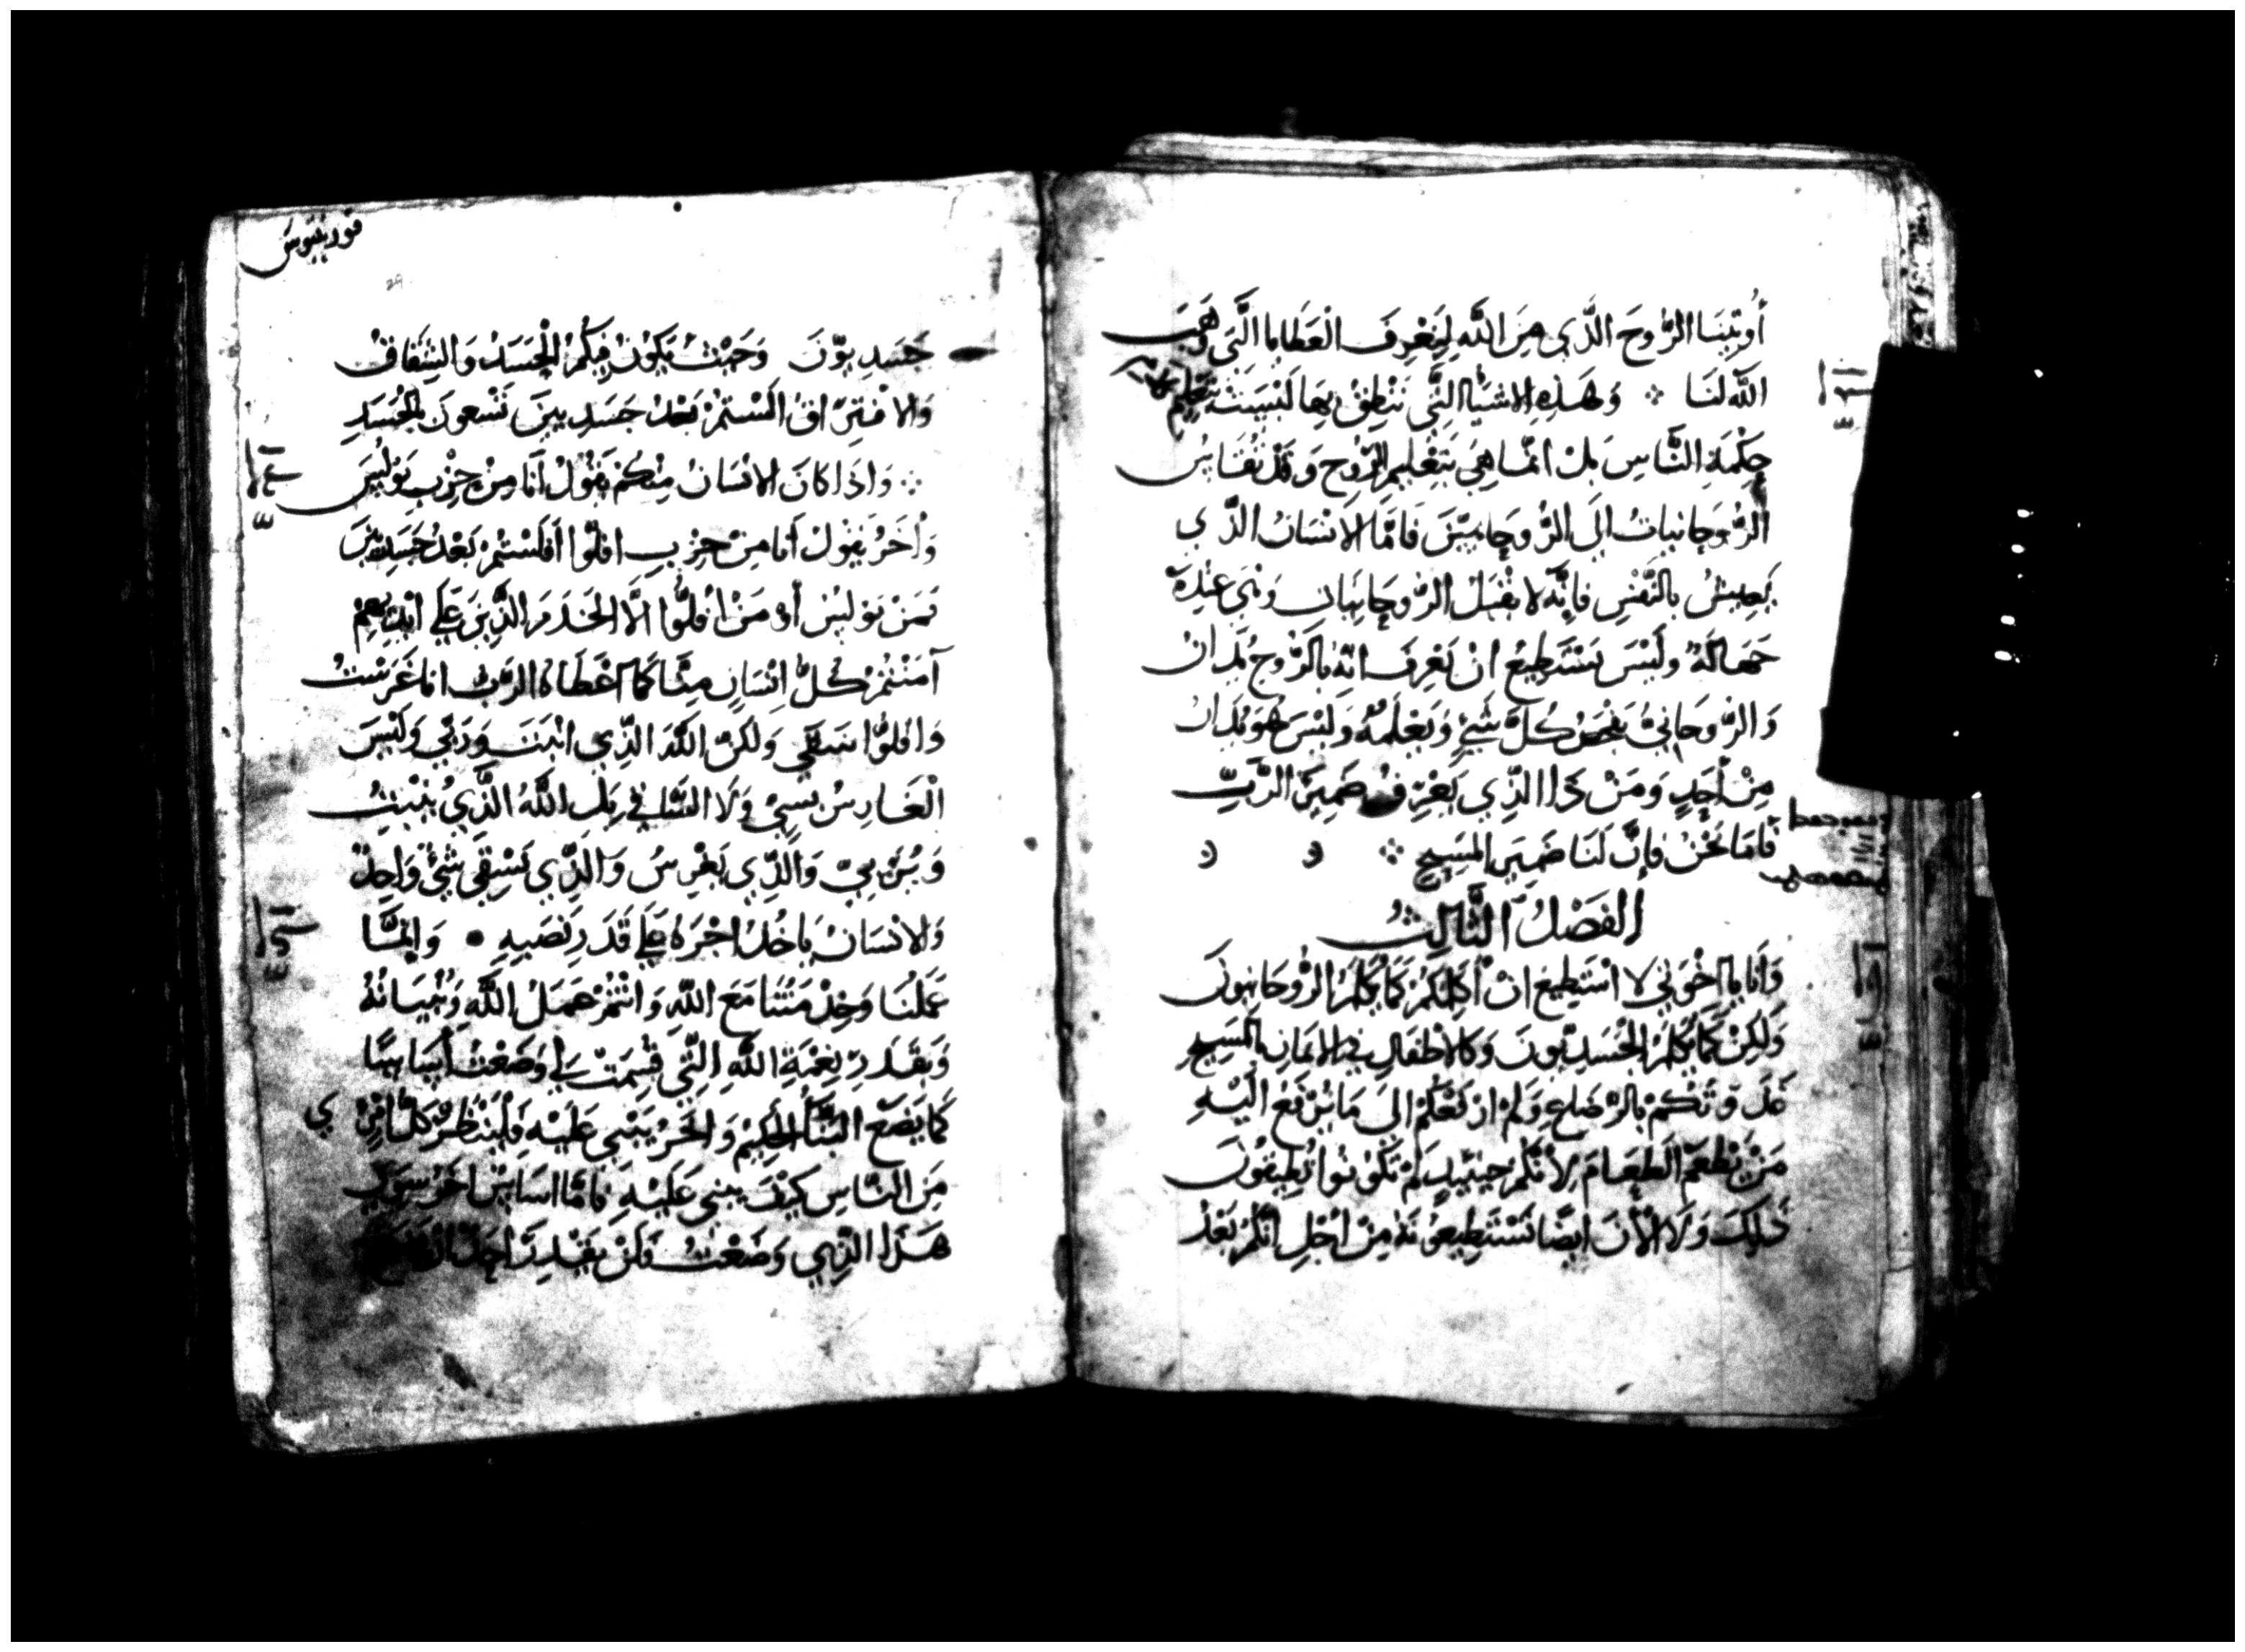 أُوتِينَا الرُّوحَ الَّذِي مِنَ اللَّهِ لِنَعْرِفَ الْعَطَايا الَّتِي وَهَبَ
اللَّه لَنَا ※ وَهَذِهِ الاشيَآ الَّتِي نَنْطِقُ بِهَا لَيْسَتْ بتَعلِيمِ كلام
حِكْمَةِ النَّاسِ بَل انَّما هِيَ بتَعْلِيمِ الرُّوحِ وَقَدْ نُقَايِسُ
الرُّوحَانياتُ الَى الرُّوحَانِيّينَ فَامَّا الاَنسَانُ الَّذِي
يَعِيشُ بالنَّفْسِ فَانَّه لا يَقْبَلُ الرُّوحَانِيَاتِ وَهيَ عِنْدهُ
جَهَالَةٌ وَلَيْسَ يَسْتَطِيعُ انْ يَعْرِفَ انهُ بالرُّوحِ يُدَانُ
وَالرُّوحَانِيُّ يَفْحَصُ كُلَّ شَيْءٍ وَيَعْلَمُهُ وَلَيْسَ هُوَ يُدَانُ
مِنْ أَحَدٍ وَمَنْ ذَا الَّذِي يَعْرِفُ ضَمِيرَ الرَّبِّ
فَامَا نَحْنُ فَإِنَّ لَنَا ضَمِيرَ المَسِيحِ ※
الفَصْلُ الثَّالِثُ
وَأَنَا يا اخْوَتِي لا اسْتَطِيع انْ أُكَلِّمَكُمْ كَمَا يُكَلَّمُ الرُّوحَانِيونَ
وَلَكِنْ كَمَا يُكَلَّمُ الجَسَدِيُّونَ وَكَالاطْفَالِ في الايمَانِ بالمَسِيحِ
غَذَوْتُكُمْ بالرَّضَاعِ وَلَمْ ازْفَعْكُمْ الَى مَا يُرْفَعُ الَيْهِ
مَنْ يَطْعَمُ الطَعَامَ لاَنَّكُمْ حِينَيِذٍ لَمْ تَكُونُوا تُطِيقُونَ
ذَلِكَ وَلا الأنَ ايضًا تَسْتَطِيعُونَهُ مِنْ اجْلِ انَّكُمْ بَعْدُ
قورنثيوس
جَسَدِيوّنَ وَحَيْثُ يَكُونُ فِيكُمْ الحَسَدُ وَالشِقَاقُ
وَالافتِرَاقُ الَسْتُمْ بَعْدُ جَسَدِيينَ تَسْعونَ بالجَسَدِ
※ وَاذَا كَانَ الانْسَانُ مِنْكُمْ يَقُولُ أَنَا مِنْ حِزْبِ بَوْلِسَ
وَاخَرُ يَقولُ أَنَا مِنْ حِزبِ افلّوا أَفَلَسْتُمْ بَعْدُ جَسَدِيّينَ
فَمَنْ بَوْلِسُ أَوْ مَنْ افُلُّوا الَّا الخَدَمَ الَّذِينَ عَلَى ايْدِيهِمْ
آمَنْتُمْ كُلُّ انْسَانٍ مِنَّا كَمَا اعْطَاهُ الرَبُّ انَا غَرَسْتُ
وَافلوُّا سَقَى وَلَكِنّ اللَّهَ الَّذِي انْبَتَ وَرَبّي وَلَيْسَ
الْغَارِسُ بِشَيْءٍ وَلَا السَّاقِي بَل اللَّهُ الَّذِي يُنْبِتُ
وَيُرَبّيّ وَالَّذِي يَغْرِسُ وَالَّذِي يَسْقِي شَيْءٌ وَاحِدٌ
وَالانسَانُ يَاخُذُ اجْرَهُ عَلَى قَدَرِ نَصَبِهِ • وَانمَّا
عَمَلُنَا وَخِدْمَتُنَا مَعَ اللَّه وَانْتُمْ عَمَلُ اللَّهِ وَبُنْيَانُهُ
وَبقَدَرِ نِعْمَةِ اللَّهِ الَّتِي قُسِمَتْ لِي وَضَعْتُ أَسَاسًا
كَمَا يَضَع البَنَّاءُ الحَكِيمُ وَاخَرُ يَبْنِي عَلَيْهِ فَلْيَنْظُرْ كُلُّ امْرِيْ
مِنَ النَّاسِ كَيْفَ يبني عَلَيْهِ فَامَّا اسَاسٌ اخَرُ سِوَى
هَذَا الَّذِي وَضَعْتُ فَلَنْ يَقْدِرَ احَدٌ انْ يَضَعَ